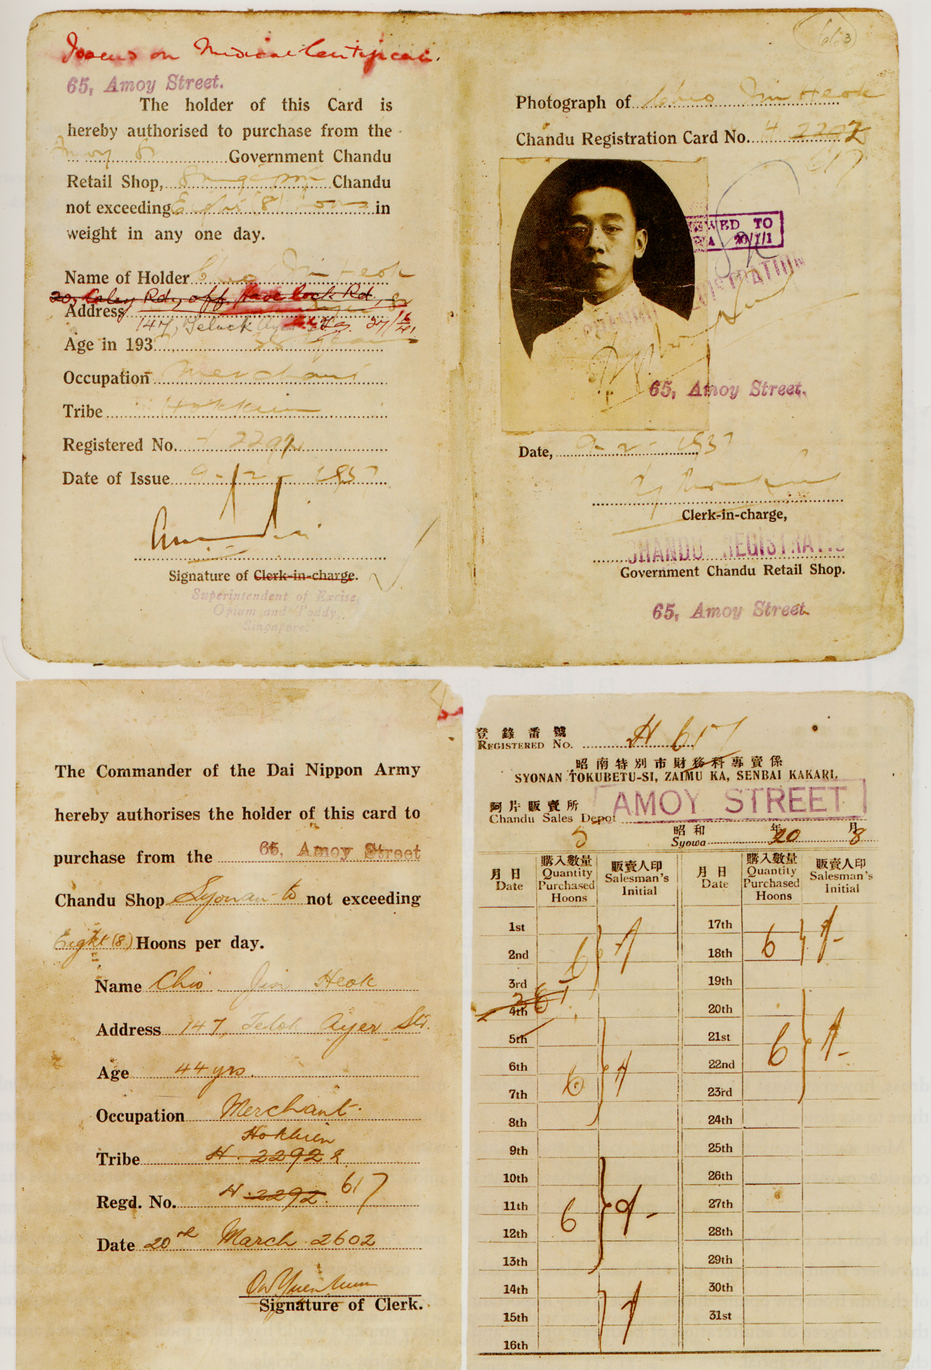 Focus on Medical Certificate.
65, Amoy Street.
The holder of this Card is
hereby authorised to purchase from the
Government Chandu
Retail Shop, Chandu
not exceeding Eight (8) in
weight in any one day.
Name of Holder
Address
147, Teluck
Age in 193
Occupation Merchant
Tribe Hokkien
Registered No. 2292
Date of Issue 9-2-1937
Signature of Clerk-in-charge.
Superintendent of Excise,
Opium and Toddy,
Singapore.
Photograph of Chio Jin Heok
Chandu Registration Card No. H 2292
617
20/1/1
65, Amoy Street.
Date, 9-2-1937
Clerk-in-charge,
CHANDU REGISTRATIO
Government Chandu Retail Shop.
65, Amoy Street.
The Commander of the Dai Nippon Army
hereby authorises the holder of this card to
purchase from the 65, Amoy Street
Chandu Shop Syonan-to not exceeding
Eight (8) Hoons per day.
Name Chio Jin Heok
Address 147, Telok Ayer St.
Age 44 yrs.
Occupation Merchant.
Hokkien
Tribe H. 2292
Regd. No. H 2292. 617
Date 20 March 2602
Signature of Clerk.
登錄番號
REGISTERED No. H 617
昭南特別市財務科專賣係
SYONAN TOKUBETU-SI, ZAIMU KA, SENBAI KAKARI,
阿片販賣所
Chandu Sales Depot AMOY STREET
昭和 年 月
Syowa 20 8
月日 購入數量 販賣人印 月日 購入數量 販賣人印
Date Quantity Purchased Hoons Salesman's Initial Date Quantity Purchased Hoons Salesman's Initial
1st 17th
2nd 6 18th 6
3rd 19th
4th 20th
5th 21st
6th 22nd 6
7th 6 23rd
8th 24th
9th 25th
10th 26th
11th 6 27th
12th 28th
13th 29th
14th 30th
15th 31st
16th